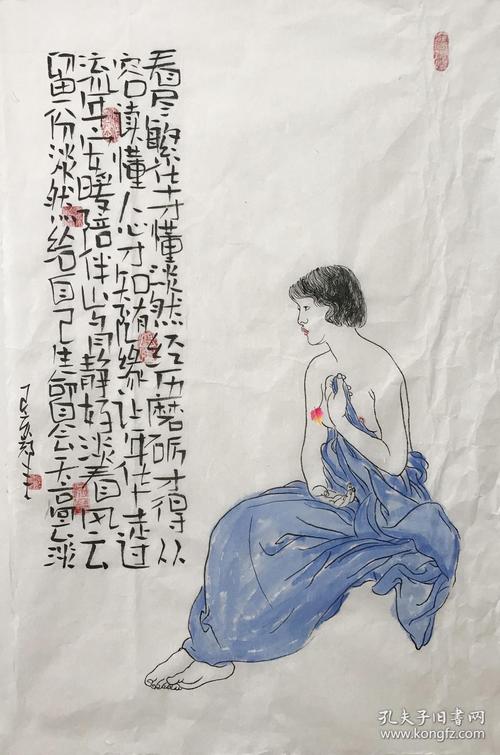 看尽繁华才懂淡然经历磨砺才得从
容读懂人心才知随缘让年华走过
流年安暖陪伴岁月静好淡看风云
留一份淡然给自己生命自会天高云淡
孔夫子旧书网
www.kongfz.com